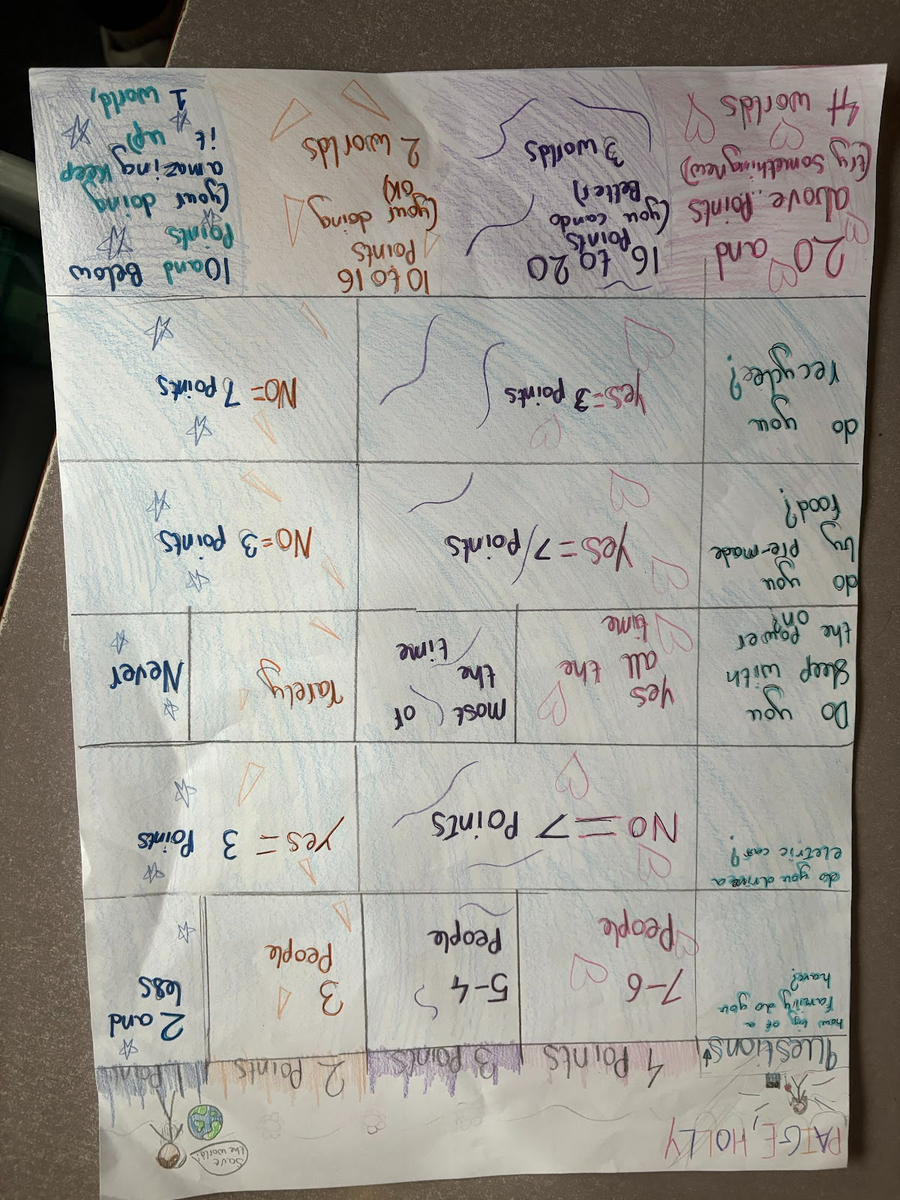 PAIGE, HOLLY
save
the world!
questions
4 Points
3 Points
2 Points
1 Point
how big of a
family do you
have?
7-6
People
5-4
People
3
People
2 and
less
do you drive a
eletric car?
NO = 7 Points
yes = 3 Points
Do you
sleep with
the power
on?
yes
all the
time
most of
the
time
rarely
Never
do you
by pre-made
food?
Yes = 7 Points
NO = 3 points
do you
recycle?
yes = 3 points
NO = 7 points
20 and
above Points
(try something new)
4 worlds
16 to 20
Points
(you can do
Better)
3 worlds
10 to 16
Points
(your doing
OK)
2 worlds
10 and Below
Points
(your doing
amazing keep
it up)
1 world,